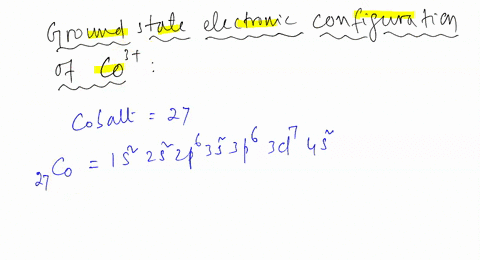 Ground state electronic configuration
of Co³⁺ :
Cobalt = 27
₂₇Co = 1s² 2s² 2p⁶ 3s² 3p⁶ 3d⁷ 4s²